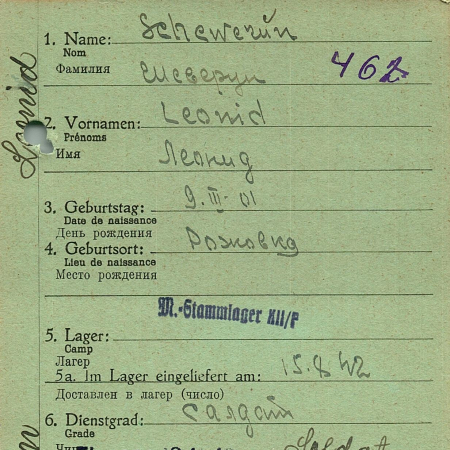 1. Name: Schewerún
Nom
Фамилия Шеверун
462
2. Vornamen: Leonid
Prénoms
Имя Леонид
3. Geburtstag: 9. III- 01
Date de naissance
День рождения
4. Geburtsort: Розновка
Lieu de naissance
Место рождения
M.-Stammlager XII/F
5. Lager:
Camp
Лагер
5a. Im Lager eingeliefert am: 15.8.42
Доставлен в лагер (число)
6. Dienstgrad: Салдат
Grade
Чин Soldat
Leonid